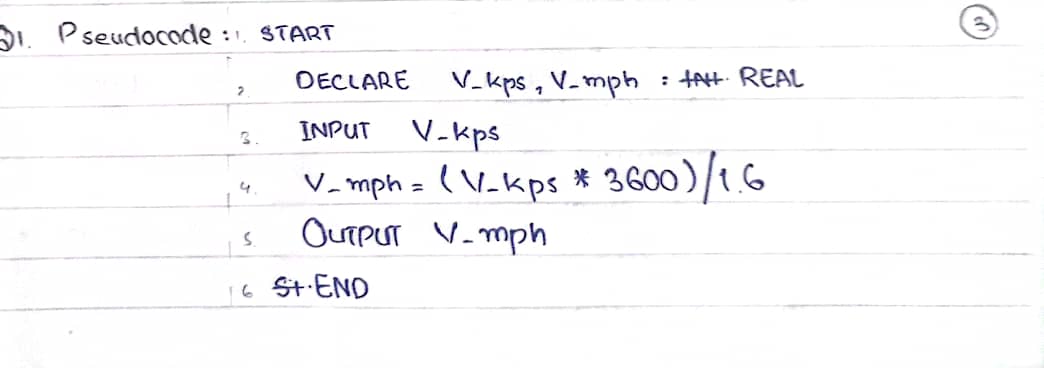 Q1. Pseudocode : 1. START 3
2. DECLARE V_kps, V_mph : INT REAL
3. INPUT V_kps
4. V_mph = (V_kps * 3600)/1.6
5. OUTPUT V_mph
6 St.END